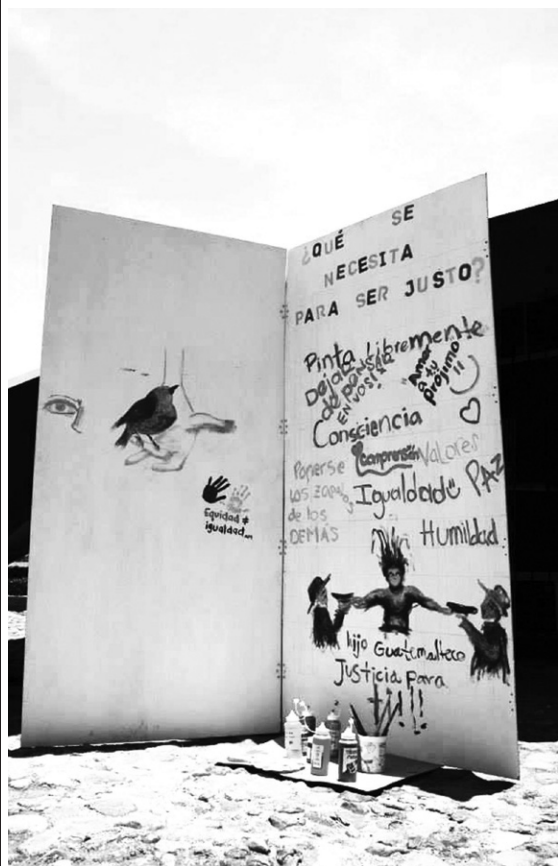 Equidad ≠
igualdad...
¿QUÉ SE
NECESITA
PARA SER JUSTO?
Pinta libremente
Dejar
de pensar
EN VOS!!
"Amar
a tu
prójimo"
Consciencia
Comprensión
Valores
Ponerse
los zapatos
de los
DEMÁS
Igualdad
PAZ
Humildad
hijo Guatemalteco
Justicia para
ti!!!